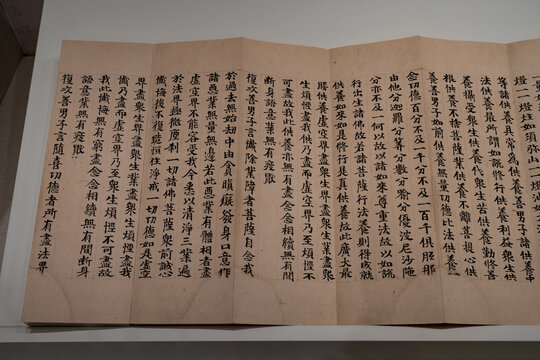 燈一一燈炷如須弥山一一燈油如
等諸供養具常為供養善男子諸供養中
法供養最所謂如說修行供養利益衆生供
養攝受衆生供養代衆生苦供養勤修善
根供養不捨菩薩業供養不離菩提心供
養善男子如前供養無量功德比法供養一
念功德百分不及一千分不及一百千俱胝那
由他分迦羅分算分數分喻分優波尼沙陀
分亦不及一何以故以諸如來尊重法故以如說
行出生諸佛故若諸菩薩行法養則得成就
供養如來如是修行是真供養故此廣大最
勝供養虛空界盡衆生界盡衆生業盡衆
生煩惱盡我供乃盡而虛空界乃至煩惱不
可盡故我此供養亦無有盡念念相續無有間
斷身語意業無有疲厭
復次善男子言懺除業障者菩薩自念我
於過去無始劫中由貪瞋癡發身口意作
諸惡業無量無邊若此惡業有體相者盡
虛空界不能容受我今悉以清淨三業遍
於法界極微塵刹一切諸佛菩薩衆前誠心
懺悔後不復造恒住淨戒一切功德如是虛空
界盡衆生界盡衆生業盡衆生煩惱盡我
懺乃盡而虛空界乃至衆生煩惱不可盡故
我此懺悔無有窮盡念念相續無有間斷身
語意業無有疲厭
復次善男子言隨喜功德者所有盡法界